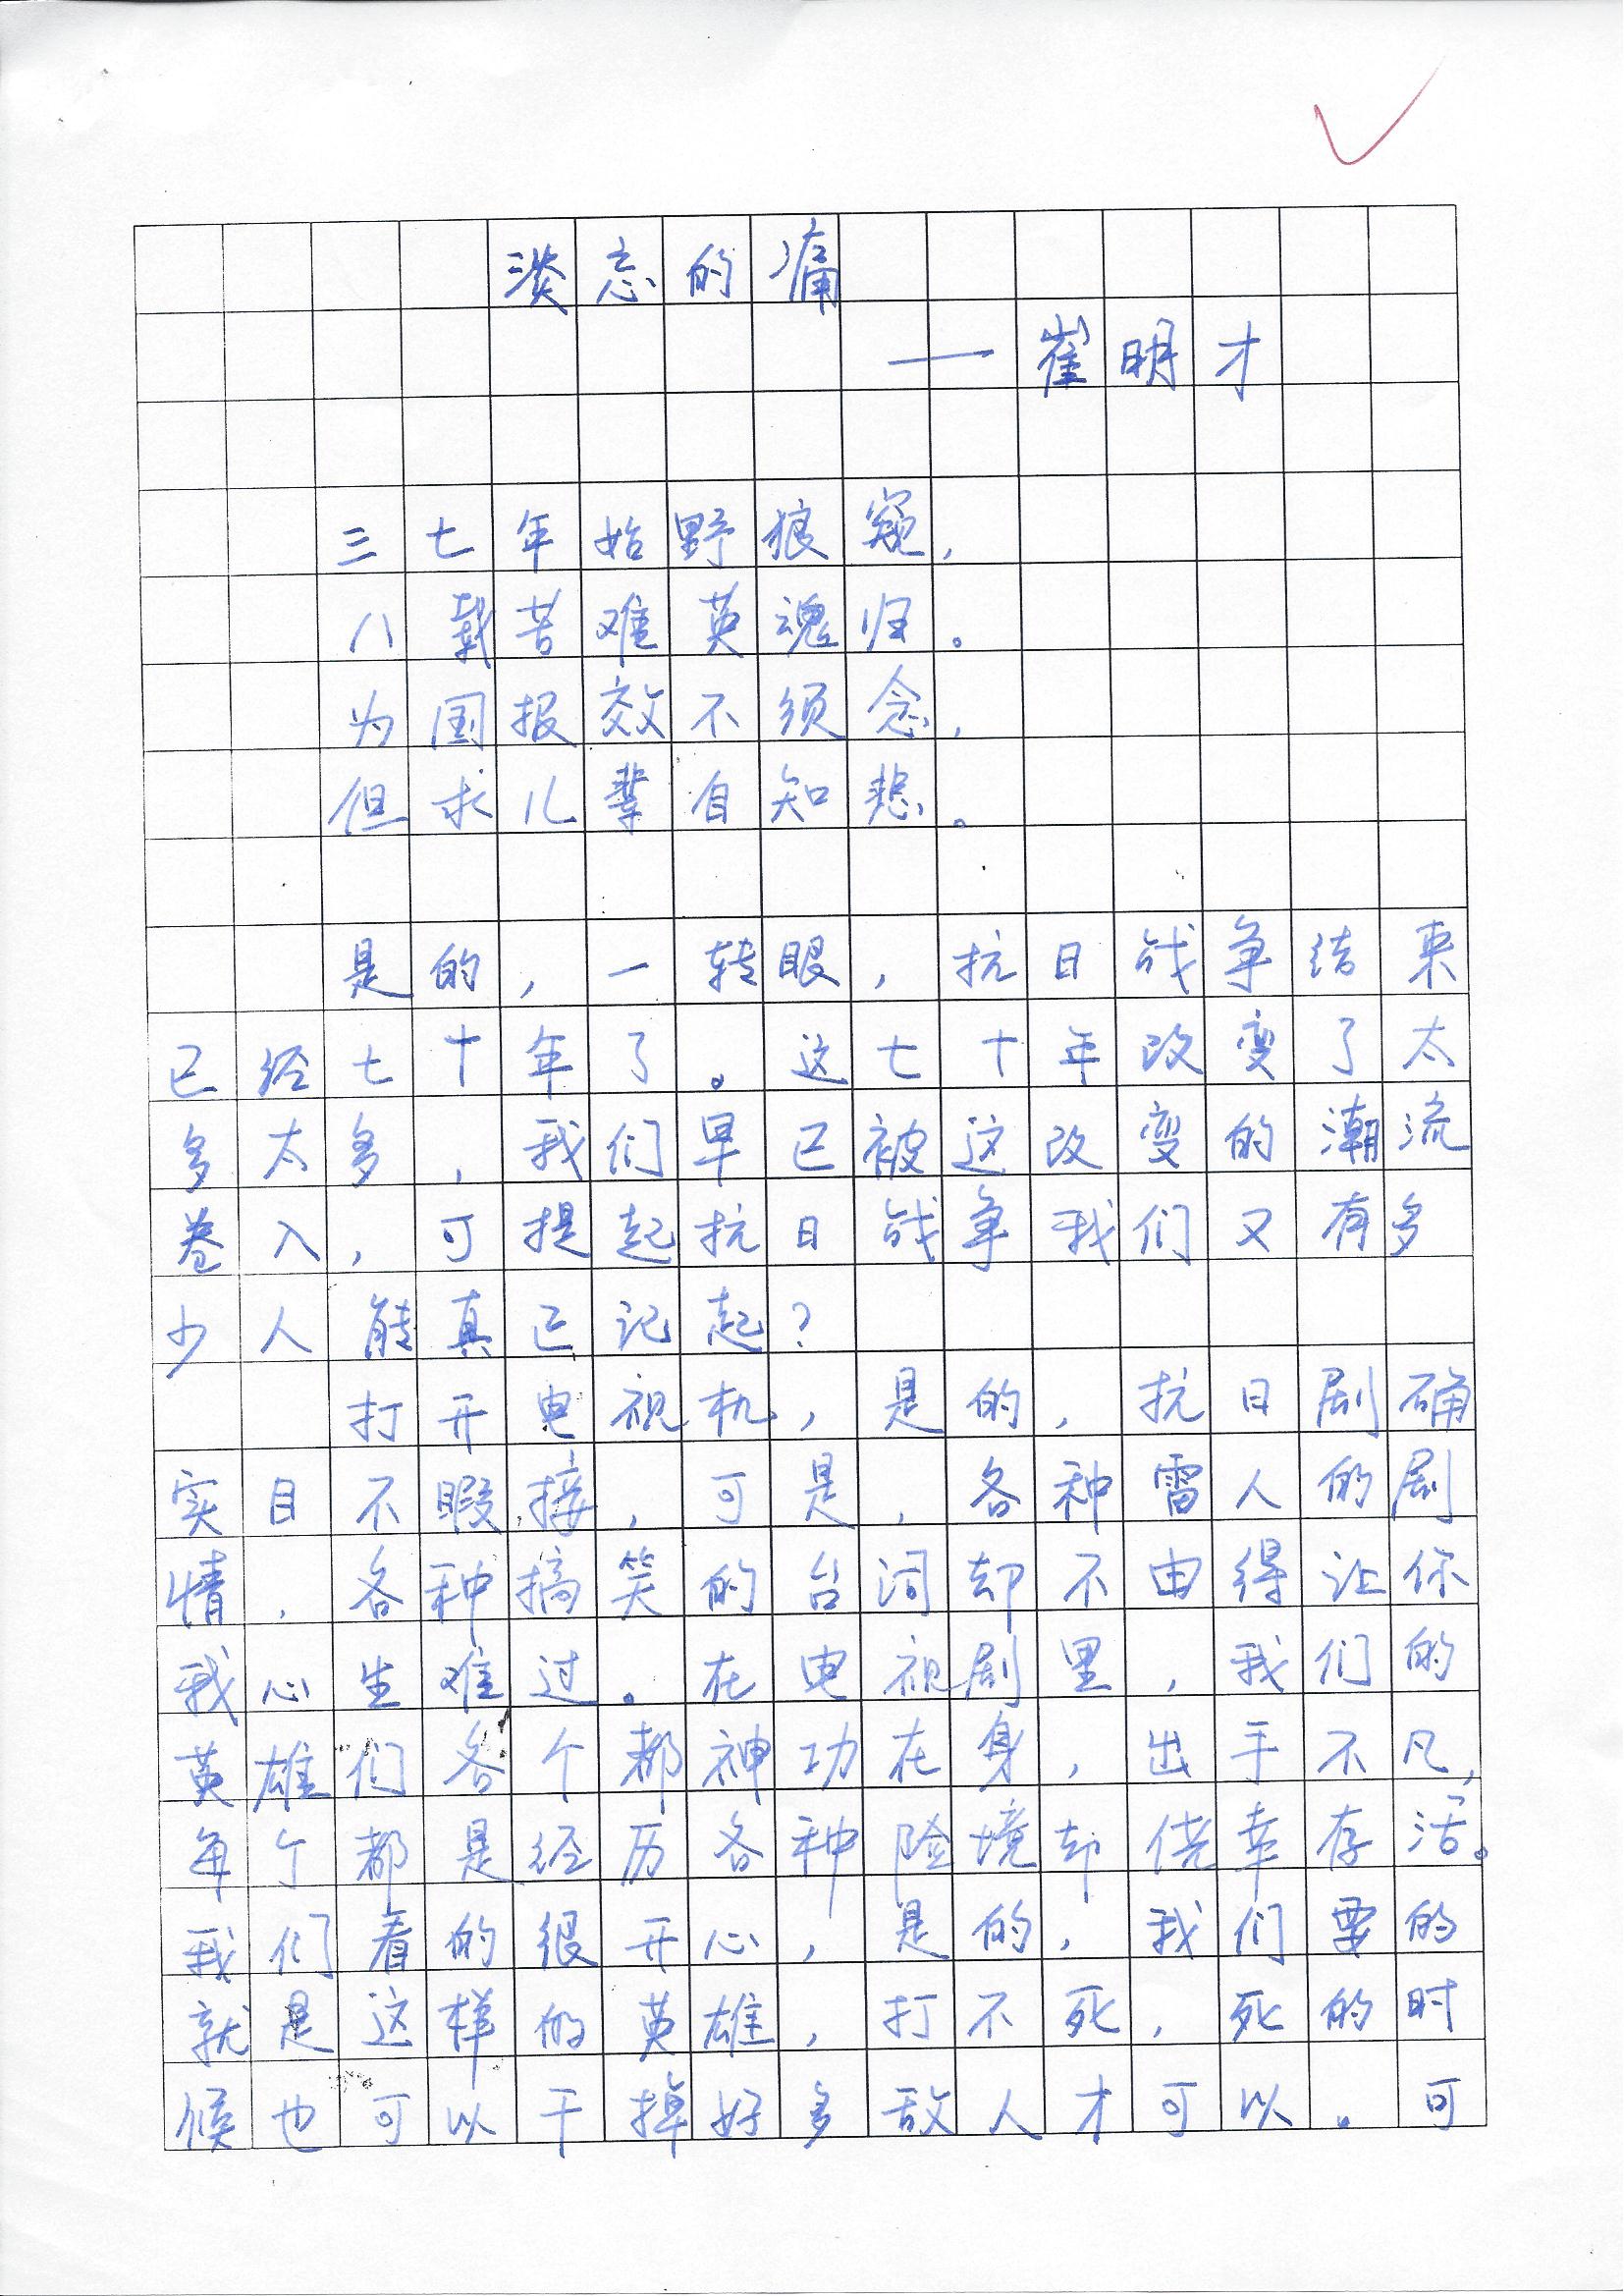 淡忘的痛
——崔明才
三七年始野狼窥,
八载苦难英魂归。
为国报效不须念,
但求儿辈自知悲。
是的,一转眼,抗日战争结束
已经七十年了。这七十年改变了太
多太多,我们早已被这改变的潮流
卷入,可提起抗日战争我们又有多
少人能真正记起?
打开电视机,是的,抗日剧确
实目不暇接,可是,各种雷人的剧
情,各种搞笑的台词却不由得让你
我心生难过。在电视剧里,我们的
英雄们各个都神功在身,出手不凡,
每个都是经历各种险境却侥幸存活。
我们看的很开心,是的,我们要的
就是这样的英雄,打不死,死的时
候也可以干掉好多敌人才可以。可